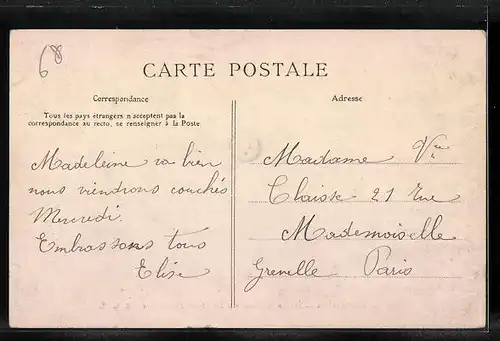 68
CARTE POSTALE
Correspondance
Tous les pays étrangers n'acceptent pas la
correspondance au recto, se renseigner à la Poste
Madeleine va bien
nous viendrons couchés
Mercredi.
Embrassons tous
Elise
Adresse
Madame Vve
Claisse 21 Rue
Mademoiselle
Grenelle Paris